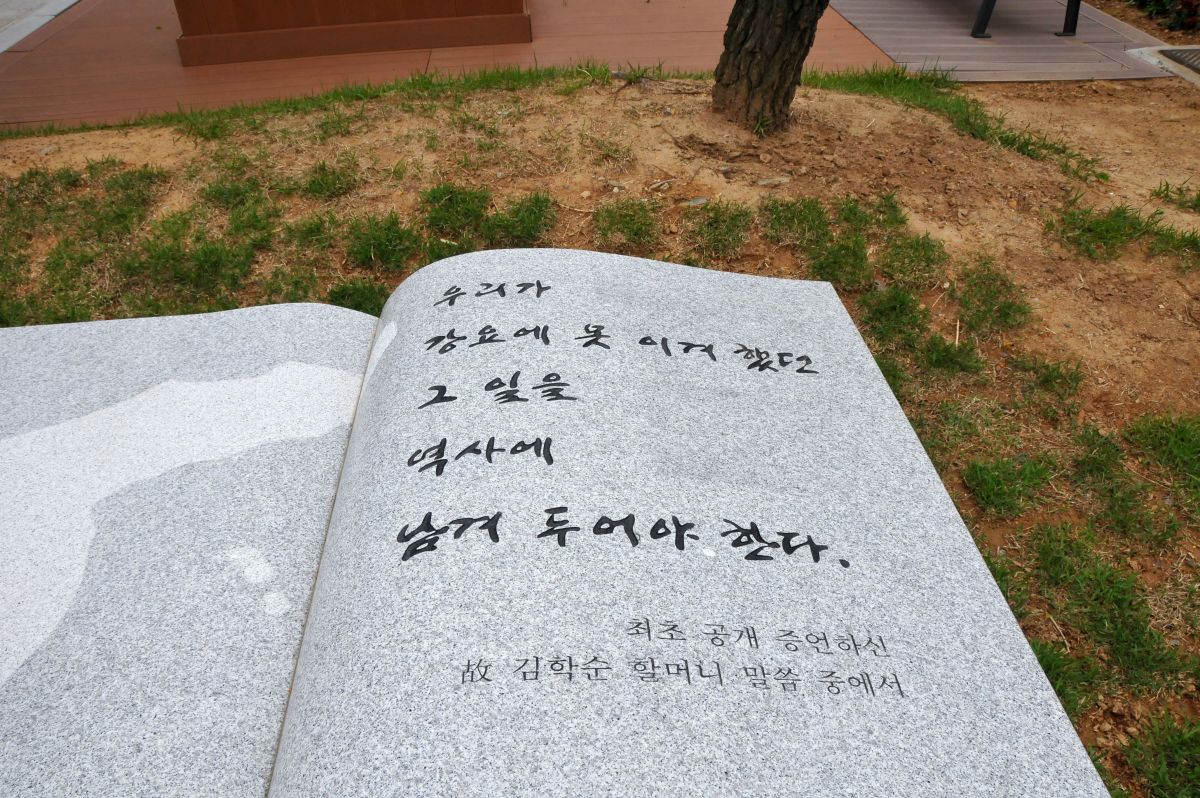 우리가
강요에 못 이겨 했던
그 일을
역사에
남겨 두어야 한다.
최초 공개 증언하신
故 김학순 할머니 말씀 중에서